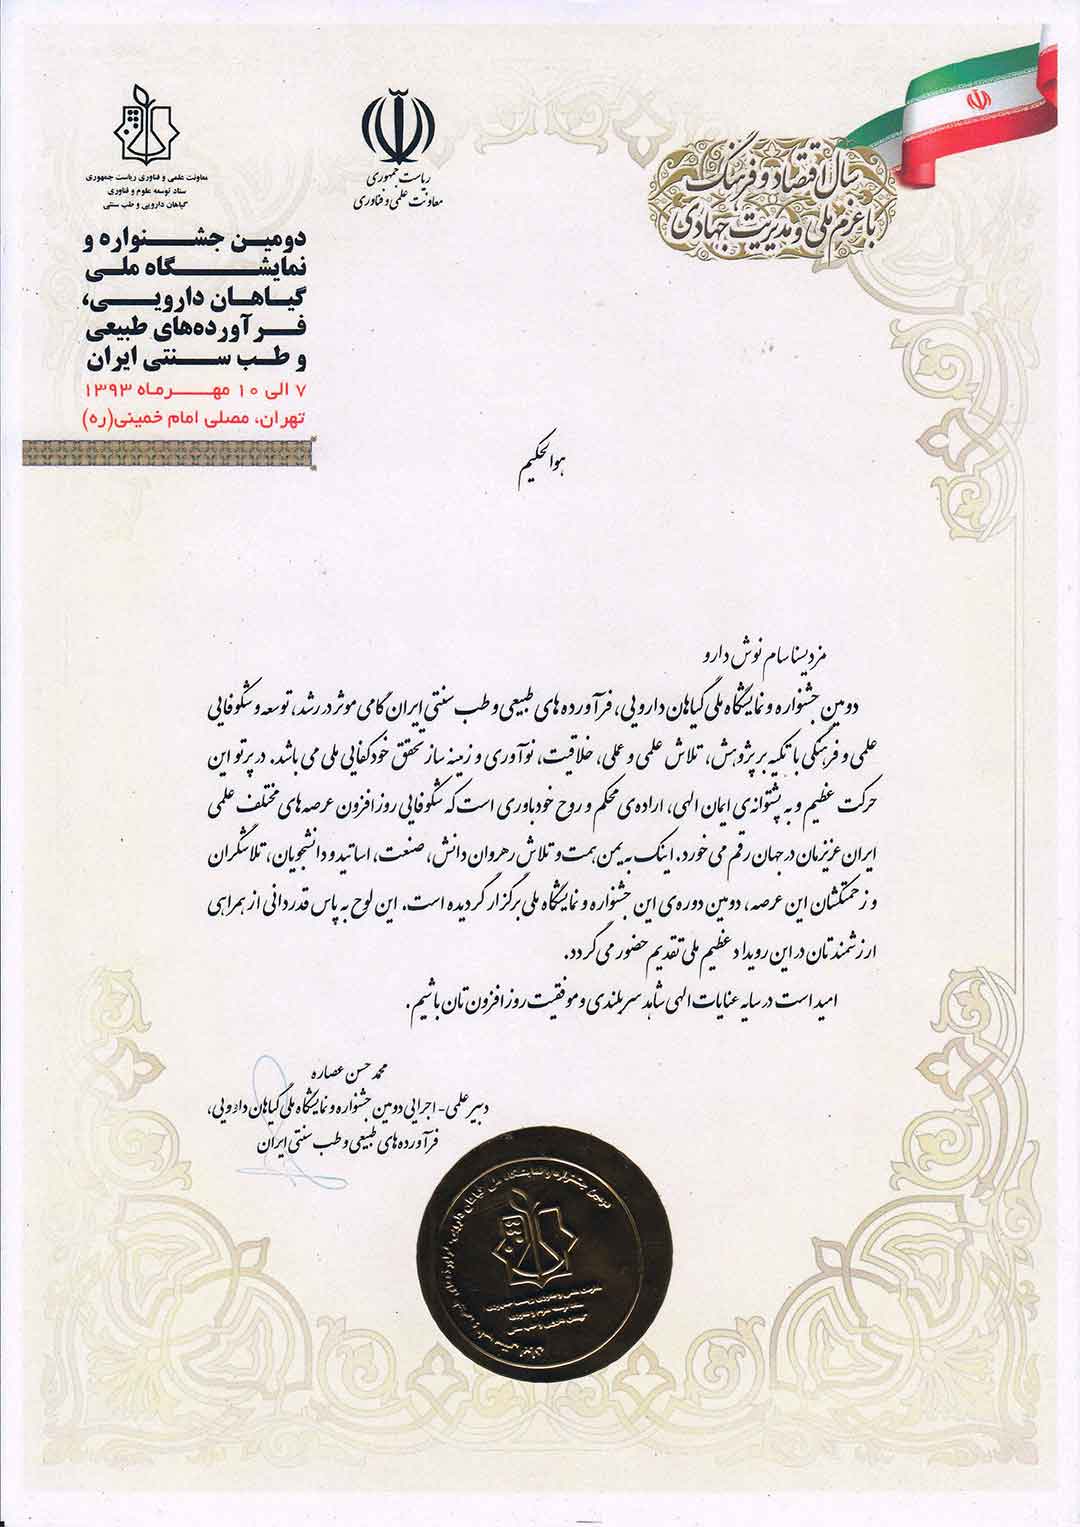 سال اقتصاد و فرهنگ
با عزم ملی و مدیریت جهادی
ریاست جمهوری
معاونت علمی و فناوری
معاونت علمی و فناوری ریاست جمهوری
ستاد توسعه علوم و فناوری
گیاهان دارویی و طب سنتی
دومین جشنواره و
نمایشگاه ملی
گیاهان دارویی،
فرآورده‌های طبیعی
و طب سنتی ایران
۷ الی ۱۰ مهرماه ۱۳۹۳
تهران، مصلی امام خمینی(ره)
هوالحکیم
مزدیسنا سام نوش دارو
دومین جشنواره و نمایشگاه ملی گیاهان دارویی، فرآورده های طبیعی و طب سنتی ایران گامی موثر در رشد، توسعه و شکوفایی
علمی و فرهنگی با تکیه بر پژوهش، تلاش علمی و عملی، خلاقیت، نوآوری و زمینه ساز تحقق خودکفایی ملی می باشد. در پرتو این
حرکت عظیم و به پشتوانه‌ی ایمان الهی، اراده‌ی محکم و روح خودباوری است که شکوفایی روز افزون عرصه های مختلف علمی
ایران عزیزمان در جهان رقم می خورد. اینک به یمن همت و تلاش رهروان دانش، صنعت، اساتید و دانشجویان، تلاشگران
و زحمتکشان این عرصه، دومین دوره‌ی این جشنواره و نمایشگاه ملی برگزار گردیده است. این لوح به پاس قدردانی از همراهی
ارزشمندتان در این رویداد عظیم ملی تقدیم حضور می گردد.
امید است در سایه عنایات الهی شاهد سربلندی و موفقیت روز افزون تان باشیم.
محمد حسن عصاره
دبیر علمی - اجرایی دومین جشنواره و نمایشگاه ملی گیاهان دارویی،
فرآورده های طبیعی و طب سنتی ایران
معاونت علمی و فناوری ریاست جمهوری
ستاد توسعه علوم و فناوری
گیاهان دارویی و طب سنتی